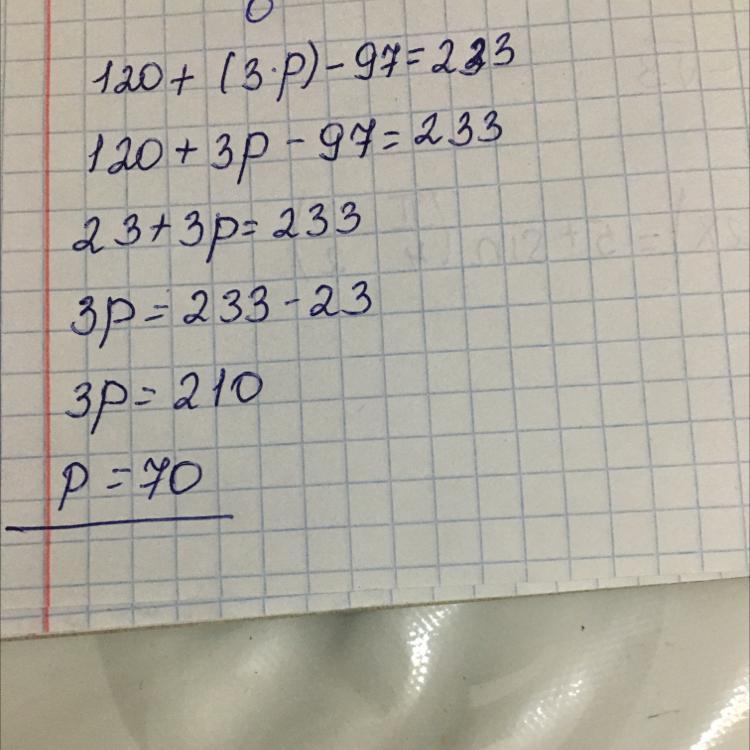 120 + (3·p) - 97 = 233
120 + 3p - 97 = 233
23 + 3p = 233
3p = 233 - 23
3p = 210
p = 70